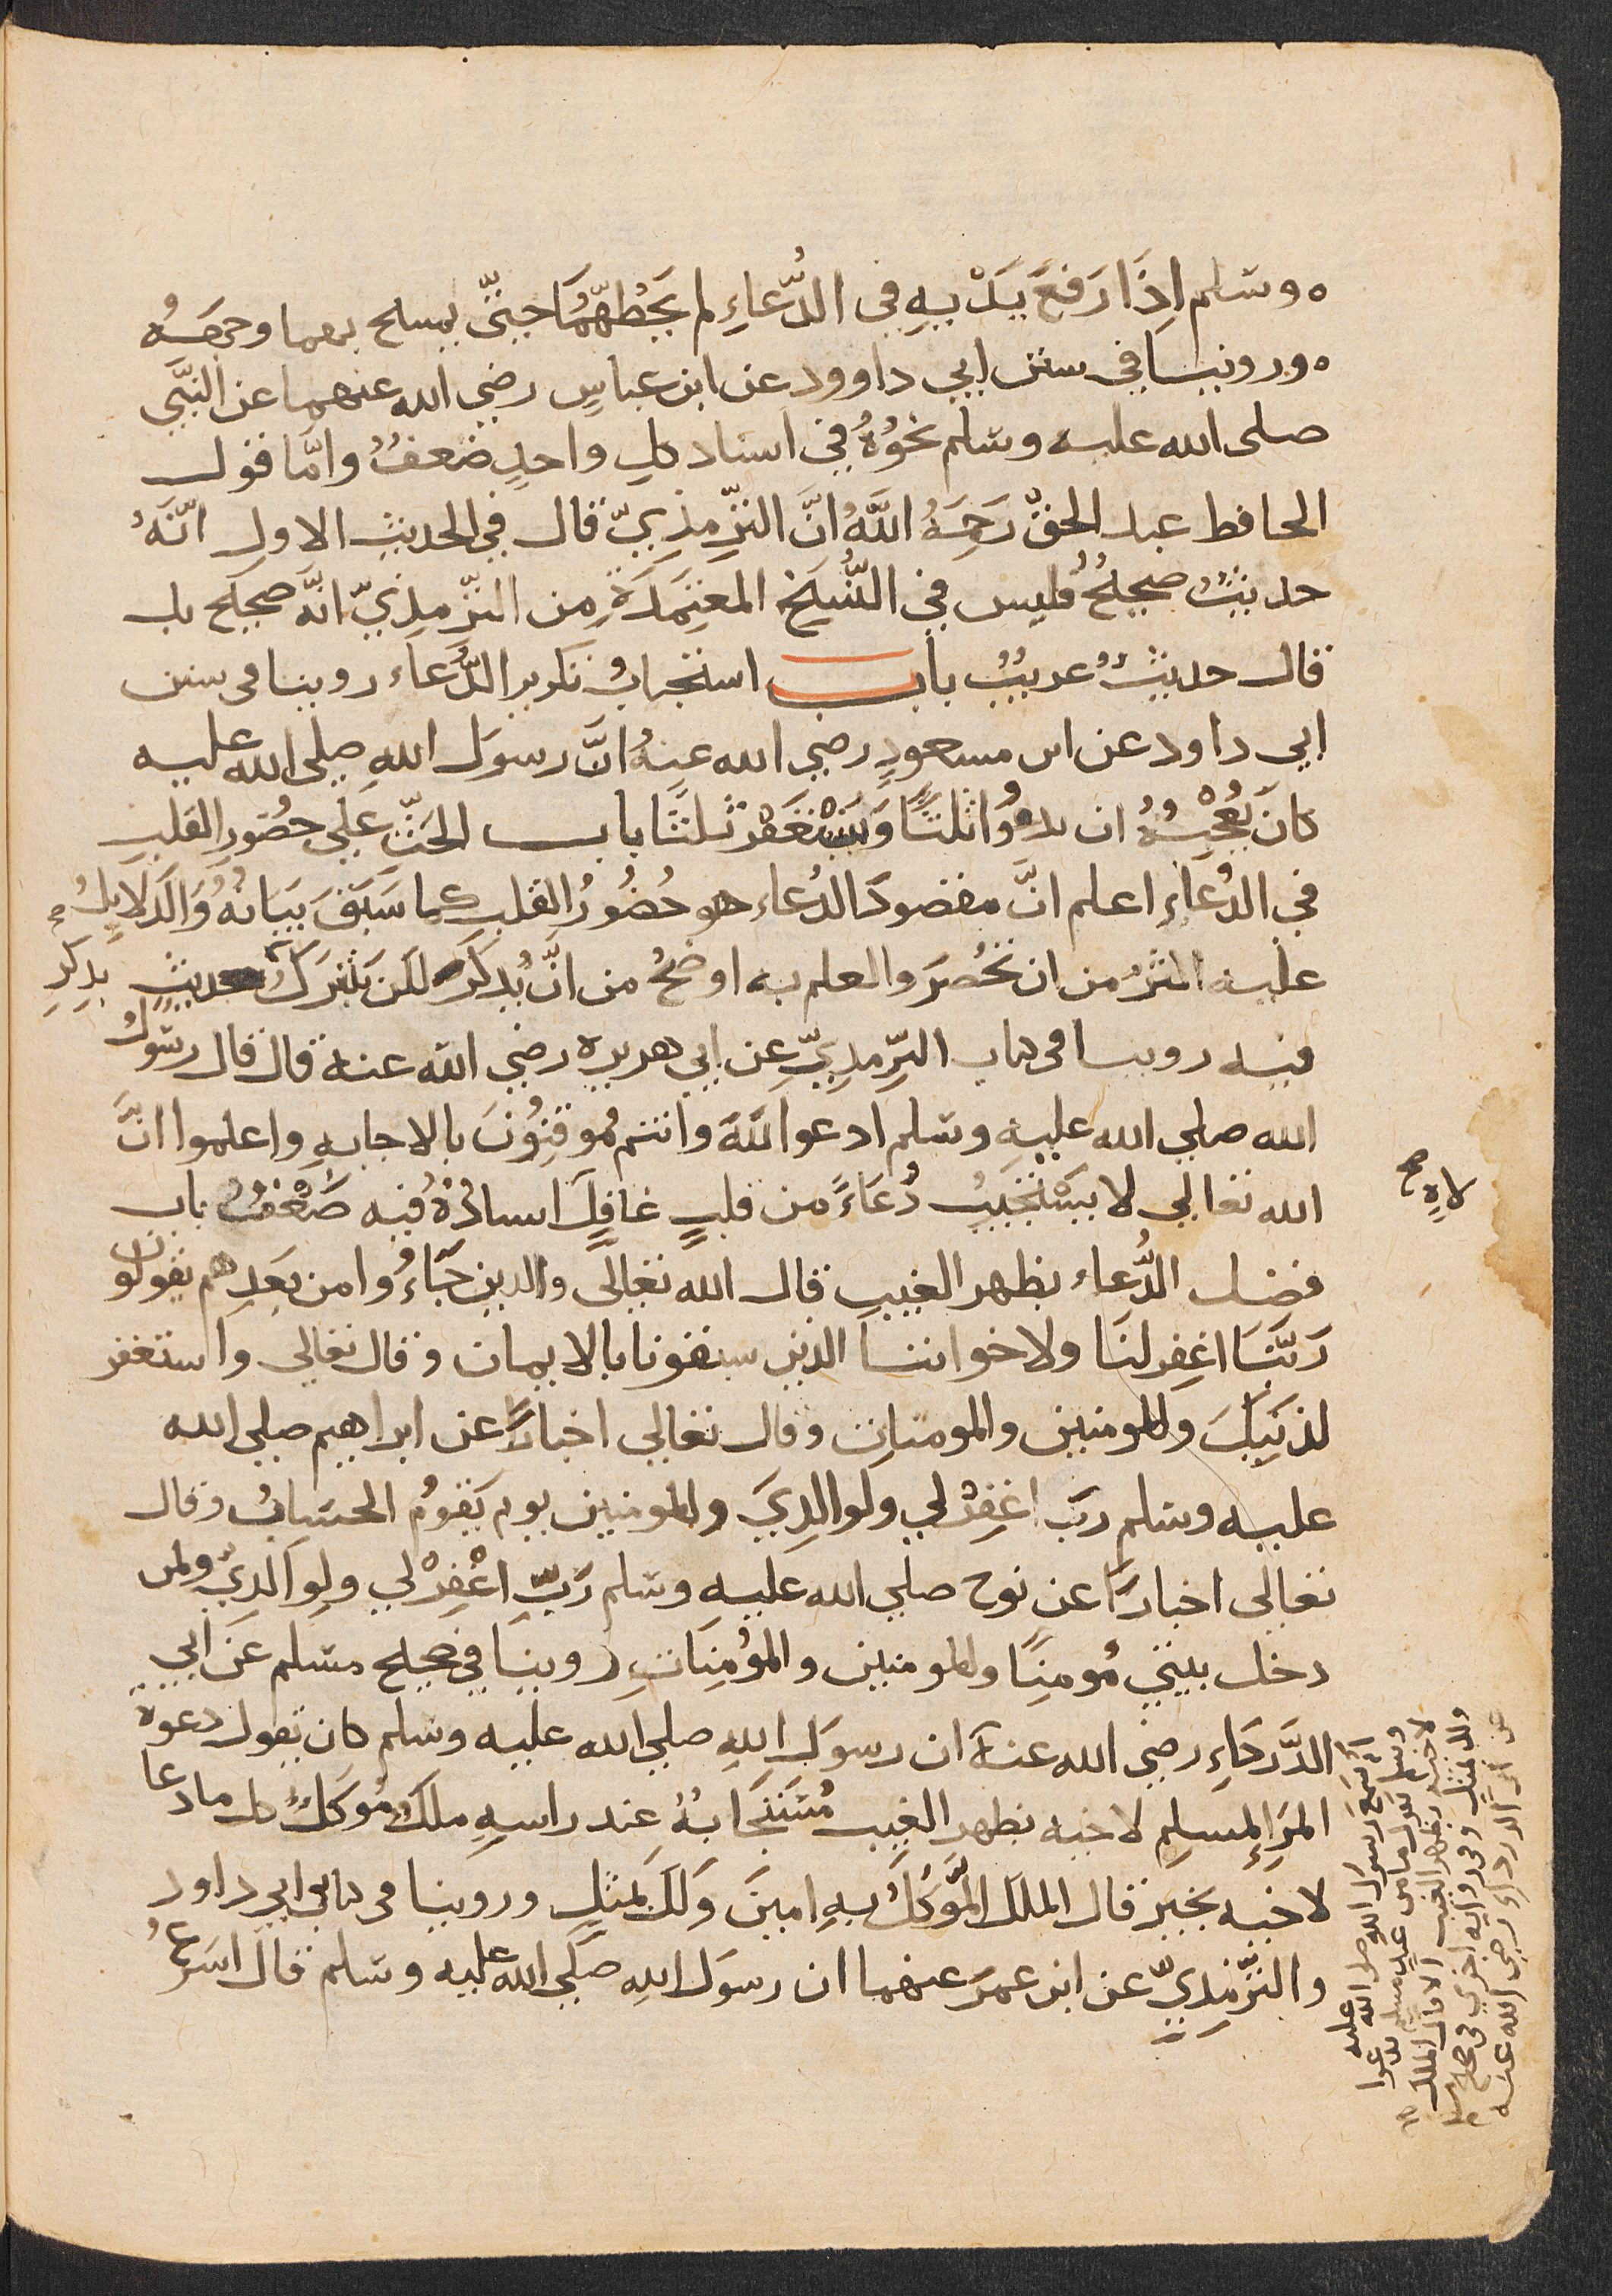 وسلم اِذَا رَفَعَ يَدَيْهِ في الدُّعَاءِ لم يَحُطَّهُمَا حتّي يمسح بهما وجهَهُ
وروينا في سنن ابي داوود عن ابن عباسٍ رضي الله عنهما عن النَّبيِّ
صلى الله عليه وسلم نحوُهُ في اسناد كلِ واحدٍ ضعفٌ وامّا قول
الحافظ عبد الحقّ رَحِمَهُ اللَّهُ انَّ التِّرمذيّ قال في الحديث الاول انّهُ
حديثٌ صحيحٌ فليس في النُّسَخ المعتَمَدَةِ من التِّرمذيّ انّه صحيح بل
قال حديثٌ غريبٌ باب استحبابُ تكرير الدُّعَاء روينا في سنن
ابي داود عن ابن مسعودٍ رضي الله عنهُ انَّ رسوَل اللهِ صلى الله عليه
كانَ يُعْجِبُهُ ان يدعُوَا ثلثًا وَيَسْتَغْفِرَ ثلثًا باب الحَثِّ عَلي حضُورِ القلبِ
في الدُعَاءِ اعلم انَّ مقصودَ الدُعَاء هو حُضُورُ القلب كما سَبَقَ بيَانُهُ وَالدَلايِلُ
عليه اكثرُ من ان تُحْصَرَ والعلم به اوضحُ من انَّ يُذكَرَ لكن نتبَرَكُ بذِكرِ حديثٍ
فيه روينا في كتاب التِّرمذِيّ عن ابي هريره رضي الله عنه قال قال رسُولُ
الله صلي الله عليه وسلم ادعوا اللّهَ وانتم مُموقِنُونَ بالاجابهِ واعلموا انَّ
الله تعالي لا يَسْتجَيبُ دُعَاءً من قلبٍ غافِلٍ اسنادُهُ فيه ضَعْفٌ باب
لاهٍ صح
فضل الدُّعاء بظهر الغيبِ قال الله تعالى والذين جَاءُوا من بعَدِهم يقولون
رَبَّنَا اغِفر لنَا ولاخواننا الذين سبقونا بالايمان وقال تعالي واستغفر
لذنبِكَ وللمومنين والمومناتِ وقال تعالي اخبارًا عن ابراهيم صلي الله
عليه وسلم ربّ اغِفرْ لي ولوالدِيَ وللمومنين يوم يَقومُ الحسَابُ وقال
تعالى اخبارًا عن نوح صلي الله عليه وسلم رَبِّ اغْفِرْ لي ولِوالديّ ولمن
دخل بيتي مُومِنًا وللمومنين والمؤمِنَاتِ روينا في صحيح مسلم عَن ابي
الدَّردَاءِ رضي الله عنهُ ان رسوَل اللهِ صلي الله عليه وسلم كان يقول دعوة
المرَءِ المسلمِ لاخيه بظهر الغيب مُستَجَابةٌ عند راسهِ ملكٌ مُوَكَلٌ كل ما دعا
لاخيه بخيرٍ قال الملك المُوَكَلُ بهِ امينَ وَلَكَ بمثلٍ وروينا في كتابي ابي داود
والتِّرْمِذيّ عن ابن عمرَ عنهما ان رسوَل اللهِ صلَّي الله عليه وسلم قال اسرعُ
عن ابي الدرداءِ رضي الله عنه
ولك بمثلٍ وفي روايه اخري في صحيح مسلم
لاخيه بظهر الغيب الا قال الملك
وسلم يقول ما من عبدٍ مسلمٍ يدعوا
انهُ سَمِعَ رسوَل اللهِ صلى الله عليه